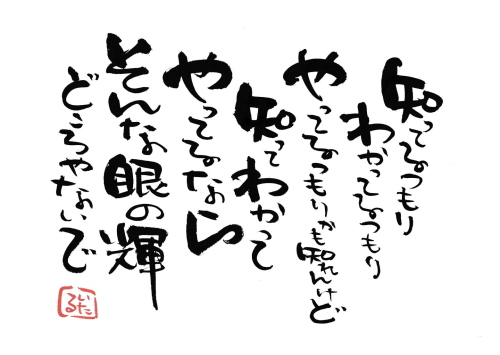 知ってるつもり
わかってるつもり
やってるつもりかも知れんけど
知ってわかって
やってるなら
そんな眼の輝
どころやないで